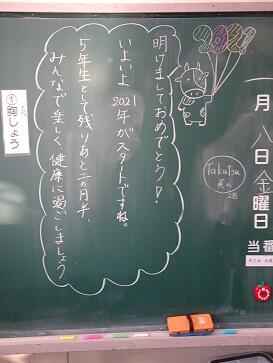 一月八日金曜日
当番
2021
Takatsu
明けましておめでとう!
いよいよ2021年がスタートですね。
5年生として残りあと三カ月半、
みんなで楽しく、健康に過ごしましょう
①胸しょう